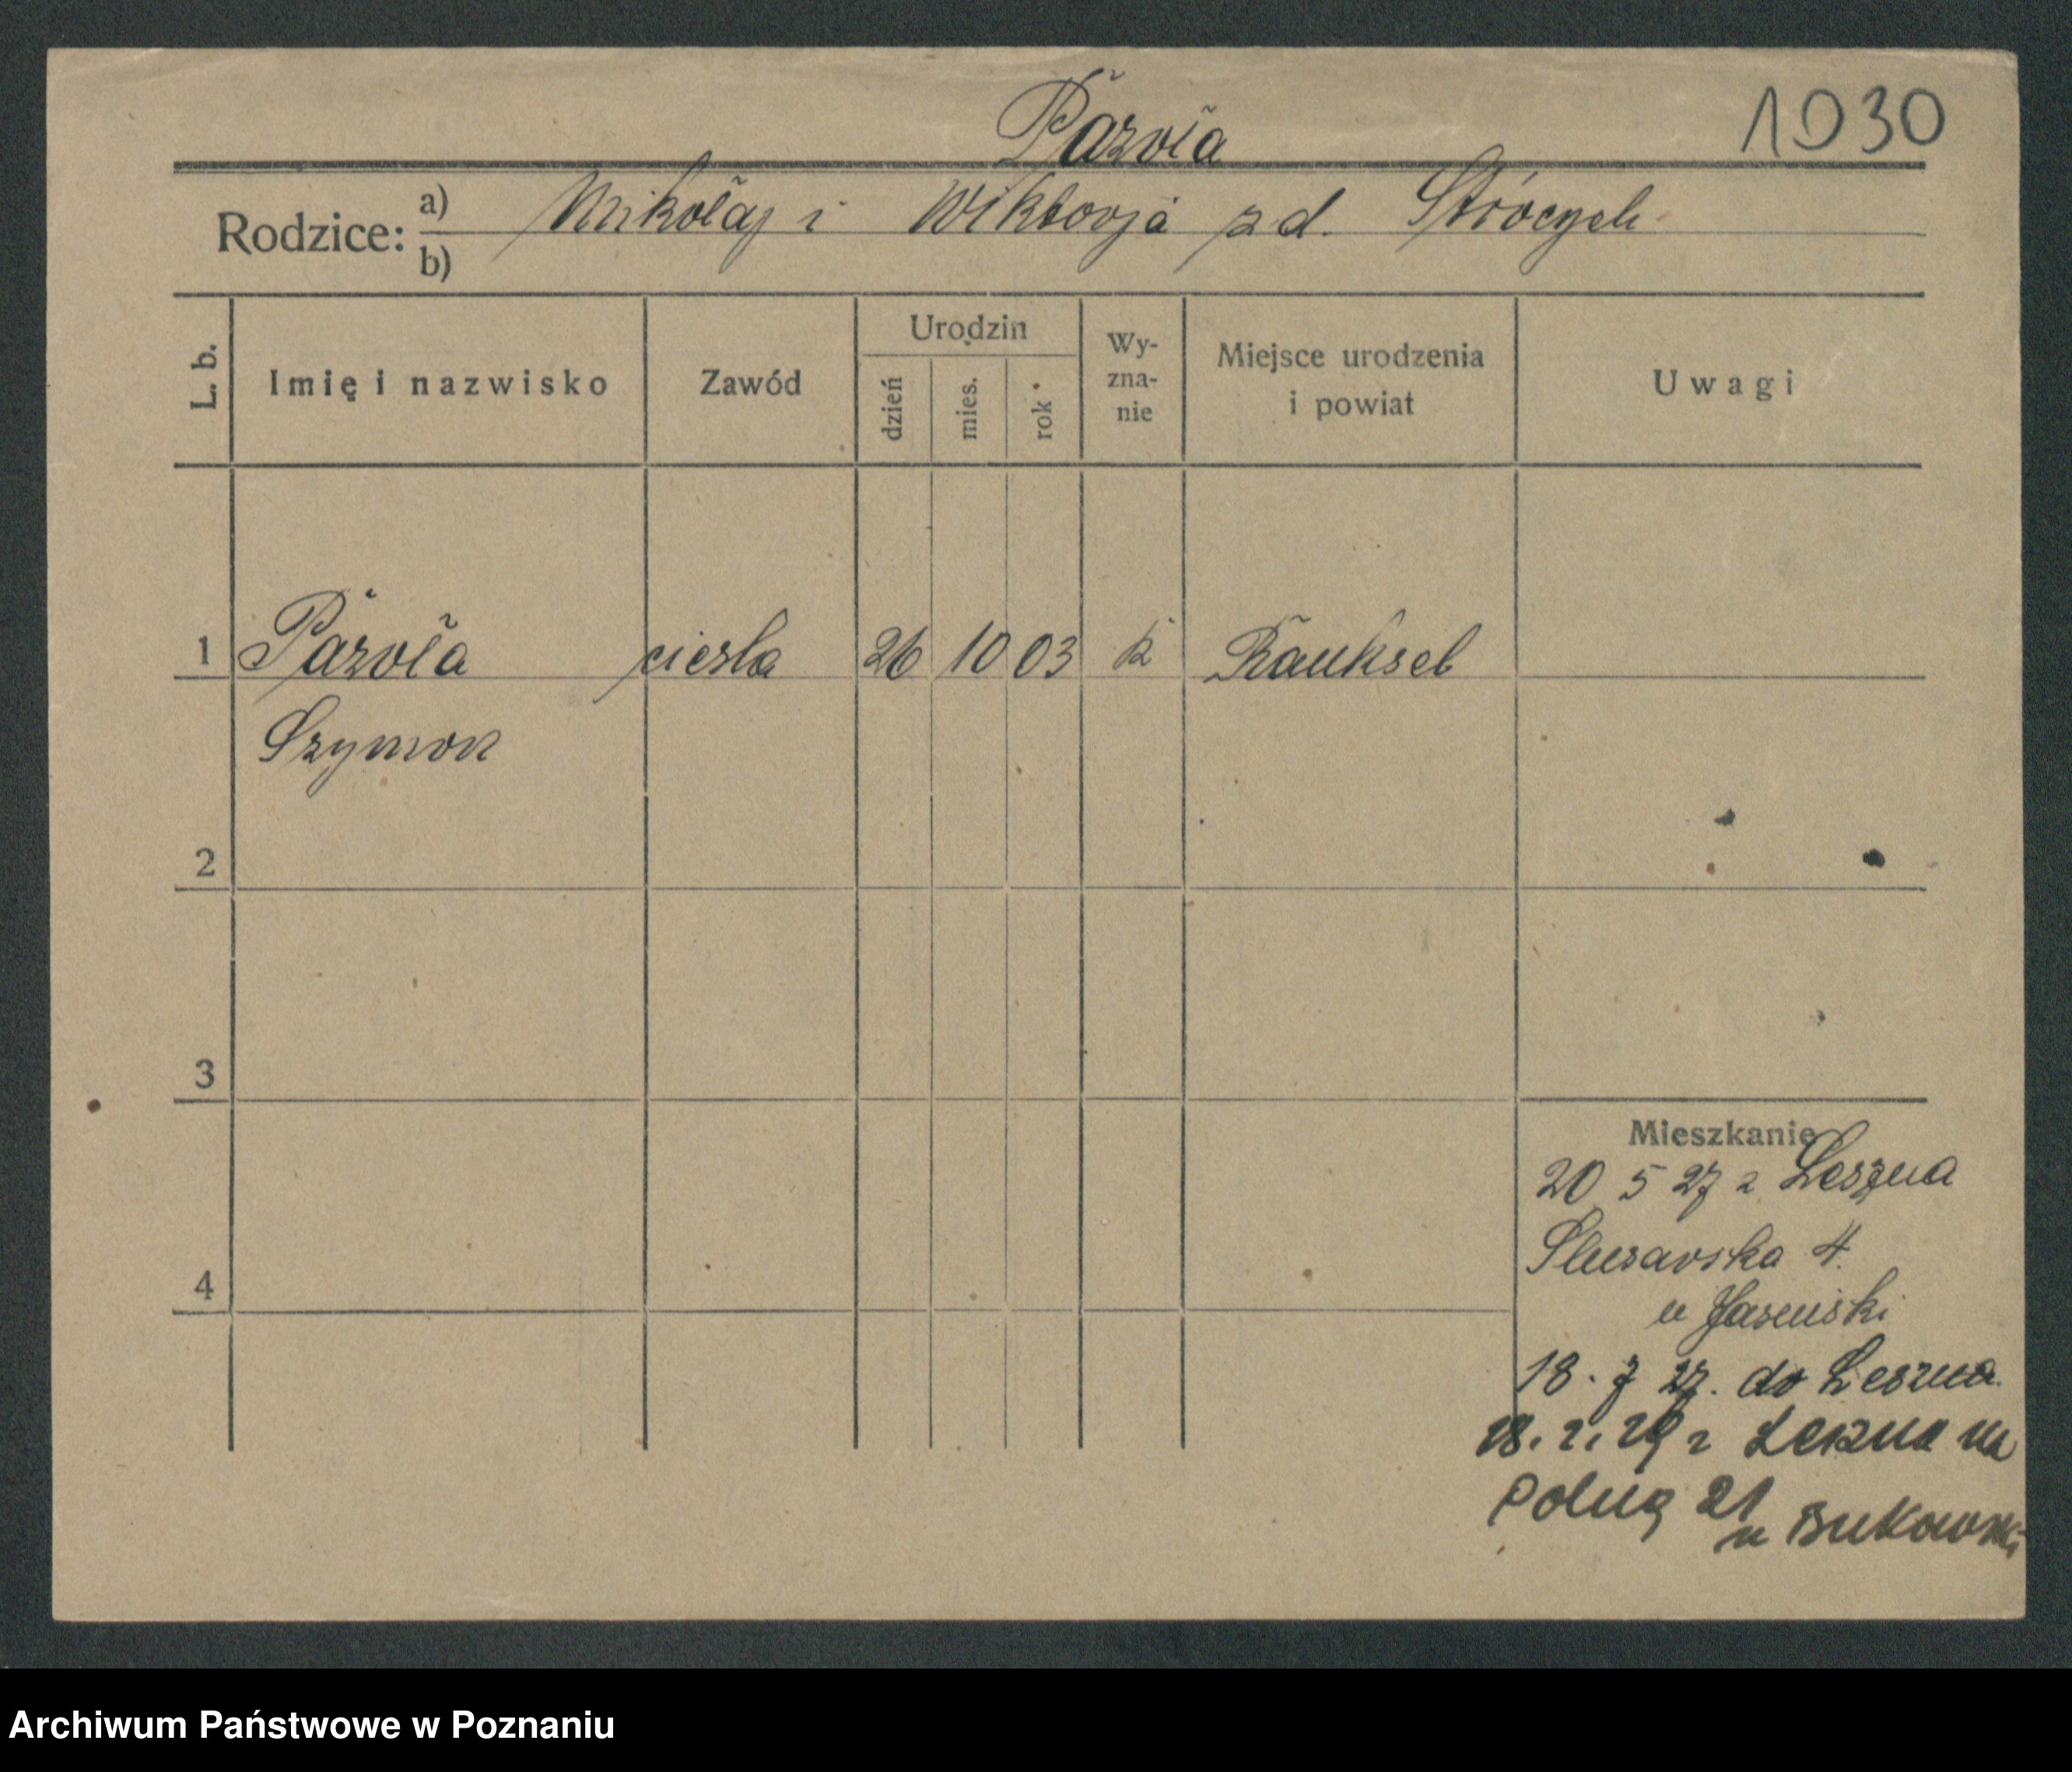 Pazoła
1030
Rodzice: a) Mikołaj i Wiktorja z d.
b)
L. b.
Imię i nazwisko
Zawód
Urodzin
dzień
mies.
rok
Wy-
zna-
nie
Miejsce urodzenia
i powiat
Uwagi
1 Pazoła cieśla 26 10 03 k Rauksel
Szymon
2
3
4
Mieszkanie
20 5 27 z Leszna
Ślusarska 4.
u Jasenski
18. 7 27. do Leszna.
18. 2. 29 z Leszna na
Polną 21
u Bukowski
Archiwum Państwowe w Poznaniu